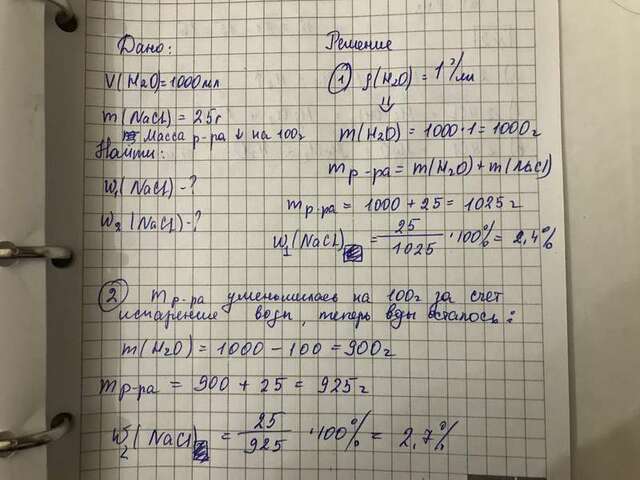 Дано:
V(H₂O)=1000мл
m(NaCl) = 25г
Масса р-ра ↓ на 100г
Найти:
W₁(NaCl)-?
W₂(NaCl)-?
Решение
① ρ(H₂O) = 1 г/мл
⇓
m(H₂O) = 1000·1 = 1000г
m р-ра = m(H₂O) + m(NaCl)
m р-ра = 1000 + 25 = 1025 г
W₁(NaCl) = 25/1025 · 100% = 2,4%
② m р-ра уменьшилась на 100г за счет
испарения воды, теперь воды осталось:
m(H₂O) = 1000 - 100 = 900г
m р-ра = 900 + 25 = 925г
W₂(NaCl) = 25/925 · 100% = 2,7%